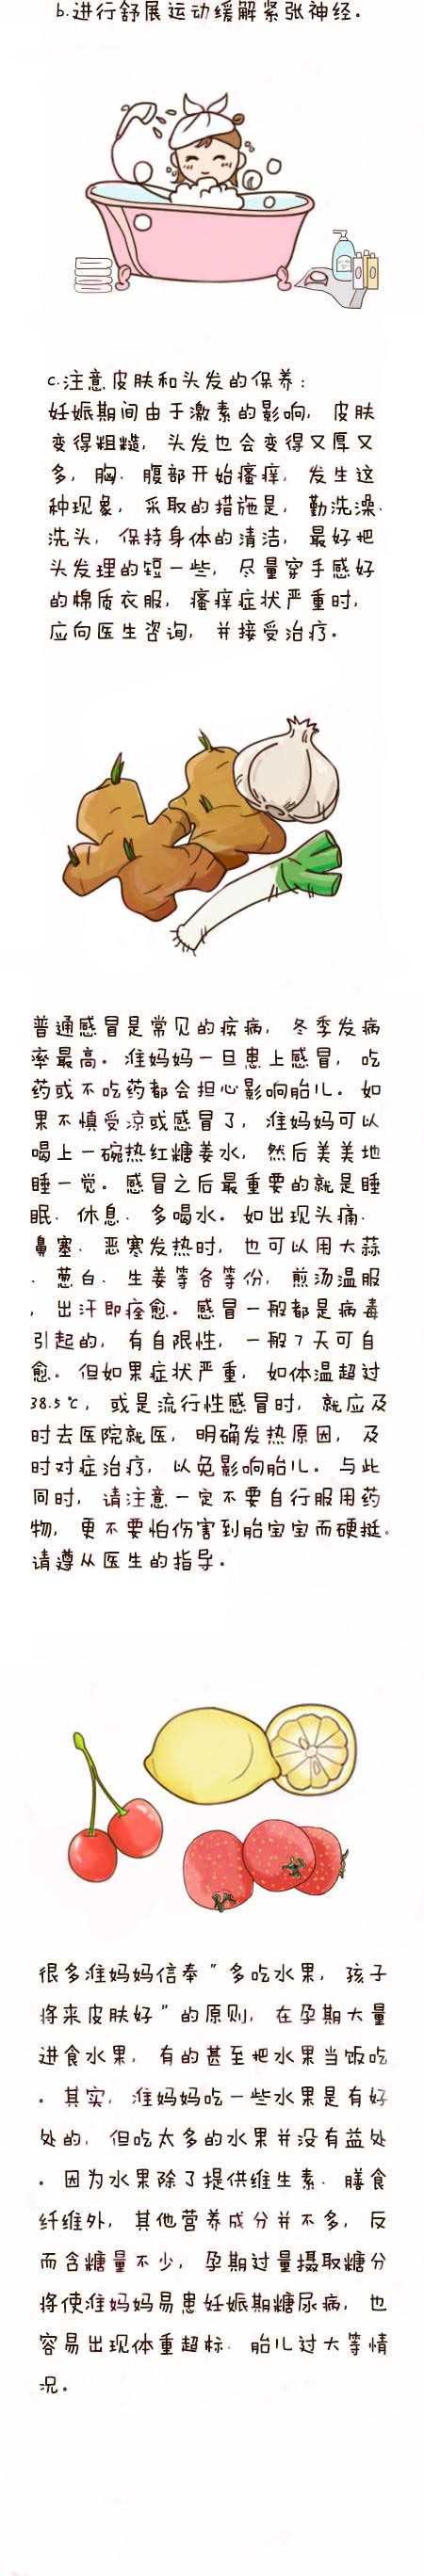 b.进行舒展运动缓解紧张神经。
c.注意皮肤和头发的保养：
妊娠期间由于激素的影响，皮肤
变得粗糙，头发也会变得又厚又
多，胸、腹部开始瘙痒，发生这
种现象，采取的措施是，勤洗澡、
洗头，保持身体的清洁，最好把
头发理的短一些，尽量穿手感好
的棉质衣服，瘙痒症状严重时，
应向医生咨询，并接受治疗。
普通感冒是常见的疾病，冬季发病
率最高。准妈妈一旦患上感冒，吃
药或不吃药都会担心影响胎儿。如
果不慎受凉或感冒了，准妈妈可以
喝上一碗热红糖姜水，然后美美地
睡一觉。感冒之后最重要的就是睡
眠、休息、多喝水。如出现头痛、
鼻塞、恶寒发热时，也可以用大蒜
、葱白、生姜等各等份，煎汤温服
，出汗即痊愈。感冒一般都是病毒
引起的，有自限性，一般7天可自
愈。但如果症状严重，如体温超过
38.5℃，或是流行性感冒时，就应及
时去医院就医，明确发热原因，及
时对症治疗，以免影响胎儿。与此
同时，请注意一定不要自行服用药
物，更不要怕伤害到胎宝宝而硬挺。
请遵从医生的指导。
很多准妈妈信奉“多吃水果，孩子
将来皮肤好”的原则，在孕期大量
进食水果，有的甚至把水果当饭吃
。其实，准妈妈吃一些水果是有好
处的，但吃太多的水果并没有益处
。因为水果除了提供维生素、膳食
纤维外，其他营养成分并不多，反
而含糖量不少，孕期过量摄取糖分
将使准妈妈易患妊娠期糖尿病，也
容易出现体重超标、胎儿过大等情
况。